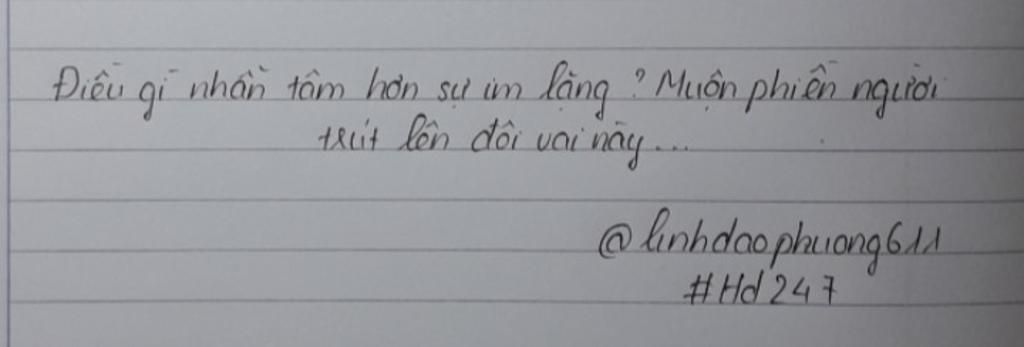 Điều gì nhẫn tâm hơn sự im lặng? Muộn phiền người
trút lên đôi vai này...
@linhdaophuong611
#Hd247